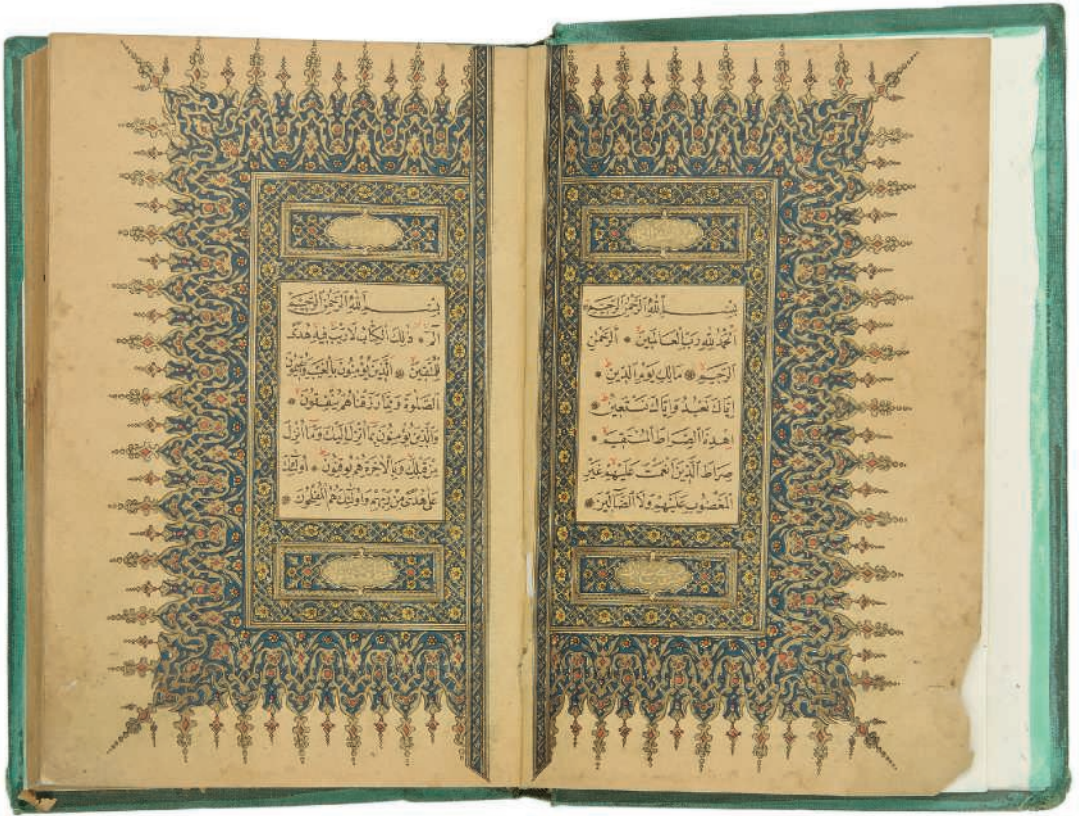 بسم الله الرحمن الرحيم
الحمد لله رب العالمين الرحمن
الرحيم مالك يوم الدين
اياك نعبد واياك نستعين
اهدنا الصراط المستقيم
صراط الذين انعمت عليهم غير
المغضوب عليهم ولا الضالين
بسم الله الرحمن الرحيم
الم ذلك الكتاب لا ريب فيه هدى
للمتقين الذين يؤمنون بالغيب ويقيمون
الصلوة ومما رزقناهم ينفقون
والذين يؤمنون بما انزل اليك وما انزل
من قبلك وبالاخرة هم يوقنون اولئك
على هدى من ربهم واولئك هم المفلحون